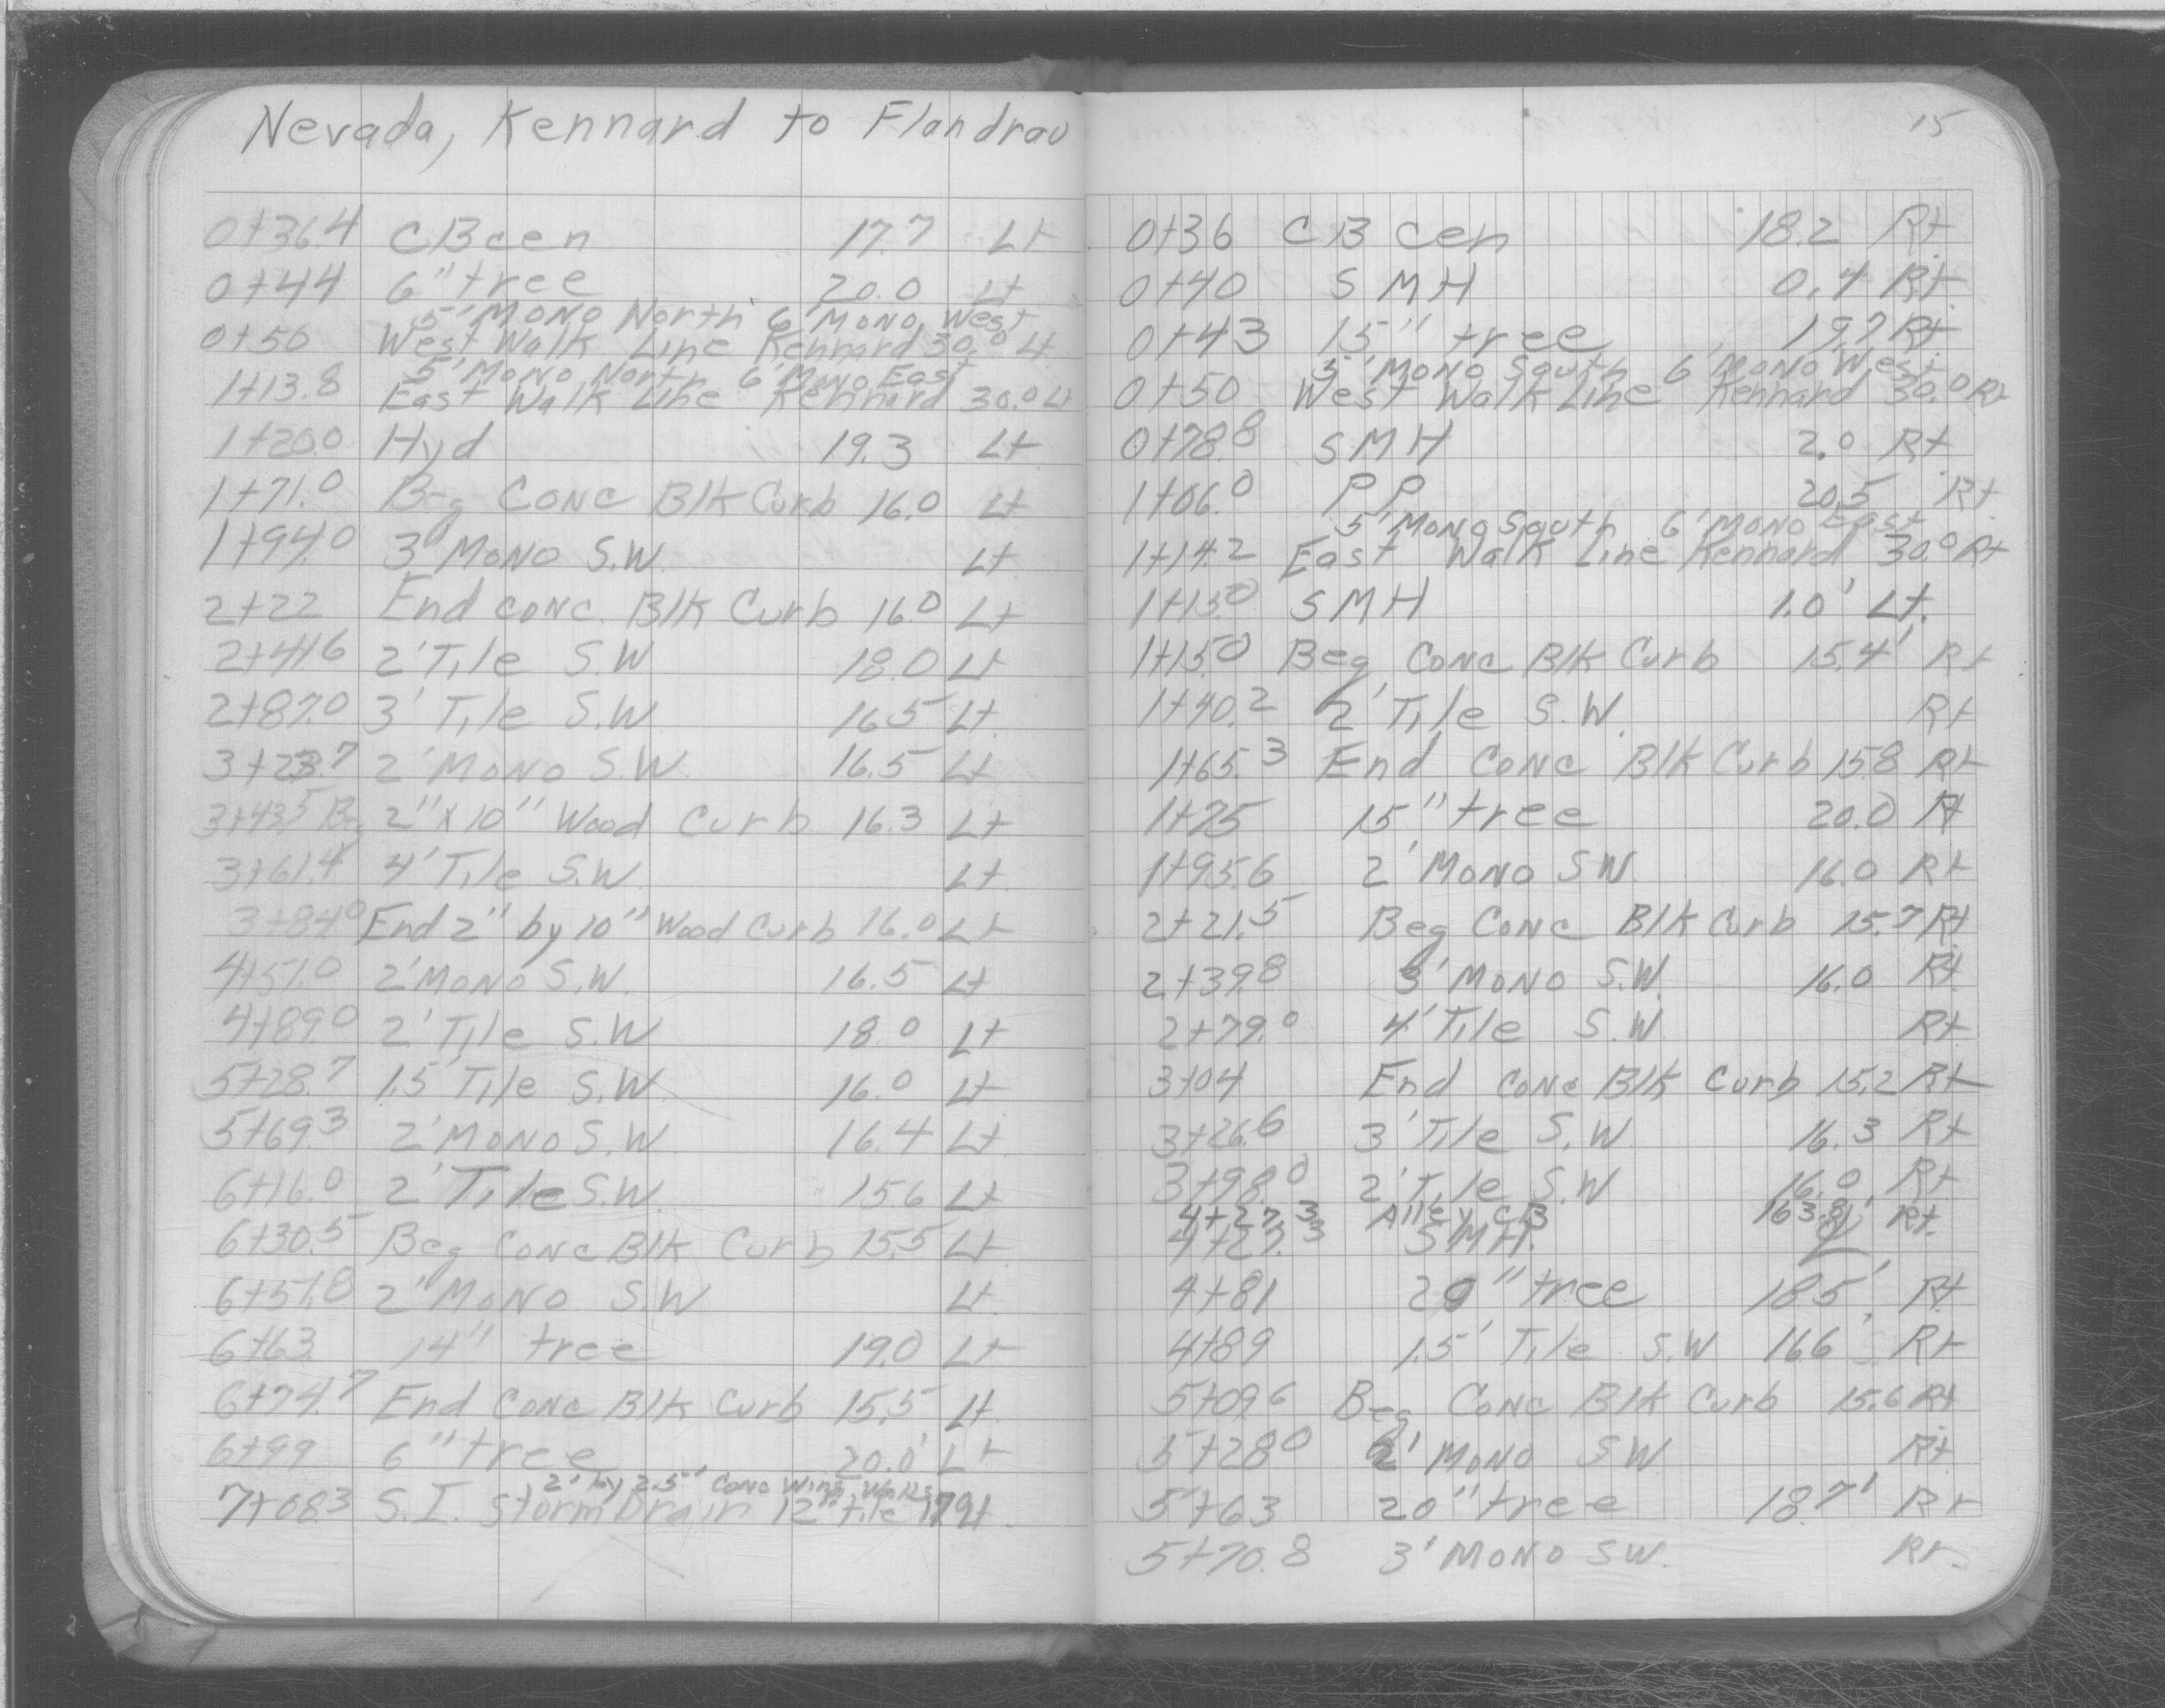 Nevada, Kennard to Flandrau
0+36.4 CB cen 17.7 Lt
0+44 6" tree 20.0 Lt
5' Mono North 6' Mono West
0+50 West Walk Line Kennard 30.0 Lt
5' Mono North 6' Mono East
1+13.8 East Walk Line Kennard 30.0 Lt
1+20.0 Hyd 19.3 Lt
1+71.0 Beg Conc Blk Curb 16.0 Lt
1+94.0 3' Mono S.W. Lt
2+22 End conc. Blk Curb 16.0 Lt
2+41.6 2' Tile S.W 18.0 Lt
2+87.0 3' Tile S.W. 16.5 Lt
3+23.7 2' Mono S.W. 16.5 Lt
3+43.5 B. 2" x 10" Wood Curb 16.3 Lt
3+61.4 4' Tile S.W. Lt
3+84.0 End 2" by 10" Wood Curb 16.0 Lt
4+51.0 2' Mono S.W. 16.5 Lt
4+89.0 2' Tile S.W 18.0 Lt
5+28.7 1.5' Tile S.W. 16.0 Lt
5+69.3 2' Mono S.W. 16.4 Lt
6+16.0 2' Tile S.W. 15.6 Lt
6+30.5 Beg Conc Blk Curb 15.5 Lt
6+51.8 2' Mono S.W Lt
6+63 14" tree 19.0 Lt
6+74.7 End Conc Blk Curb 15.5 Lt
6+99 6" tree 20.0' Lt
2' by 2.5' Conc Wing Walls
7+08.3 S.I. Storm Drain 12" tile
15
0+36 CB cen 18.2 Rt
0+40 SMH 0.4 Rt
0+43 15" tree 19.7 Rt
5' Mono South 6' Mono West
0+50 West Walk Line Kennard 30.0 Rt
0+78.8 SMH 2.0 Rt
1+06.0 PP 20.5 Rt
5' Mono South 6' Mono East
1+14.2 East Walk Line Kennard 30.0 Rt
1+15.0 SMH 1.0' Lt.
1+15.0 Beg Conc Blk Curb 15.4' Rt
1+40.2 2' Tile S.W. Rt
1+65.3 End Conc Blk Curb 15.8 Rt
1+75 15" tree 20.0 Rt
1+95.6 2' Mono SW. 16.0 Rt
2+21.5 Beg Conc Blk Curb 15.7 Rt
2+39.8 3' Mono S.W. 16.0 Rt
2+79.0 4' Tile S.W. Rt
3+04 End Conc Blk Curb 15.2 Rt
3+26.6 3' Tile S.W. 16.3 Rt
3+98.0 2' Tile S.W 16.0 Rt
4+27.3 Alley CB 163.8' Rt.
4+27.3 SMH.
4+81 20" tree 18.5' Rt
4+89 1.5' Tile S.W 16.6' Rt
5+09.6 Beg Conc Blk Curb 15.6 Rt
5+28.0 2' Mono S.W. Rt
5+63 20" tree 18.7' Rt
5+70.8 3' Mono SW. Rt.